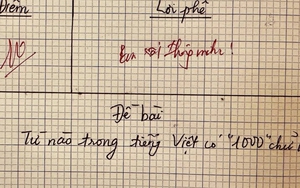 Điểm
Lời phê
10
Em rất thông minh!
Đề bài
Từ nào trong tiếng Việt có "1000" chữ